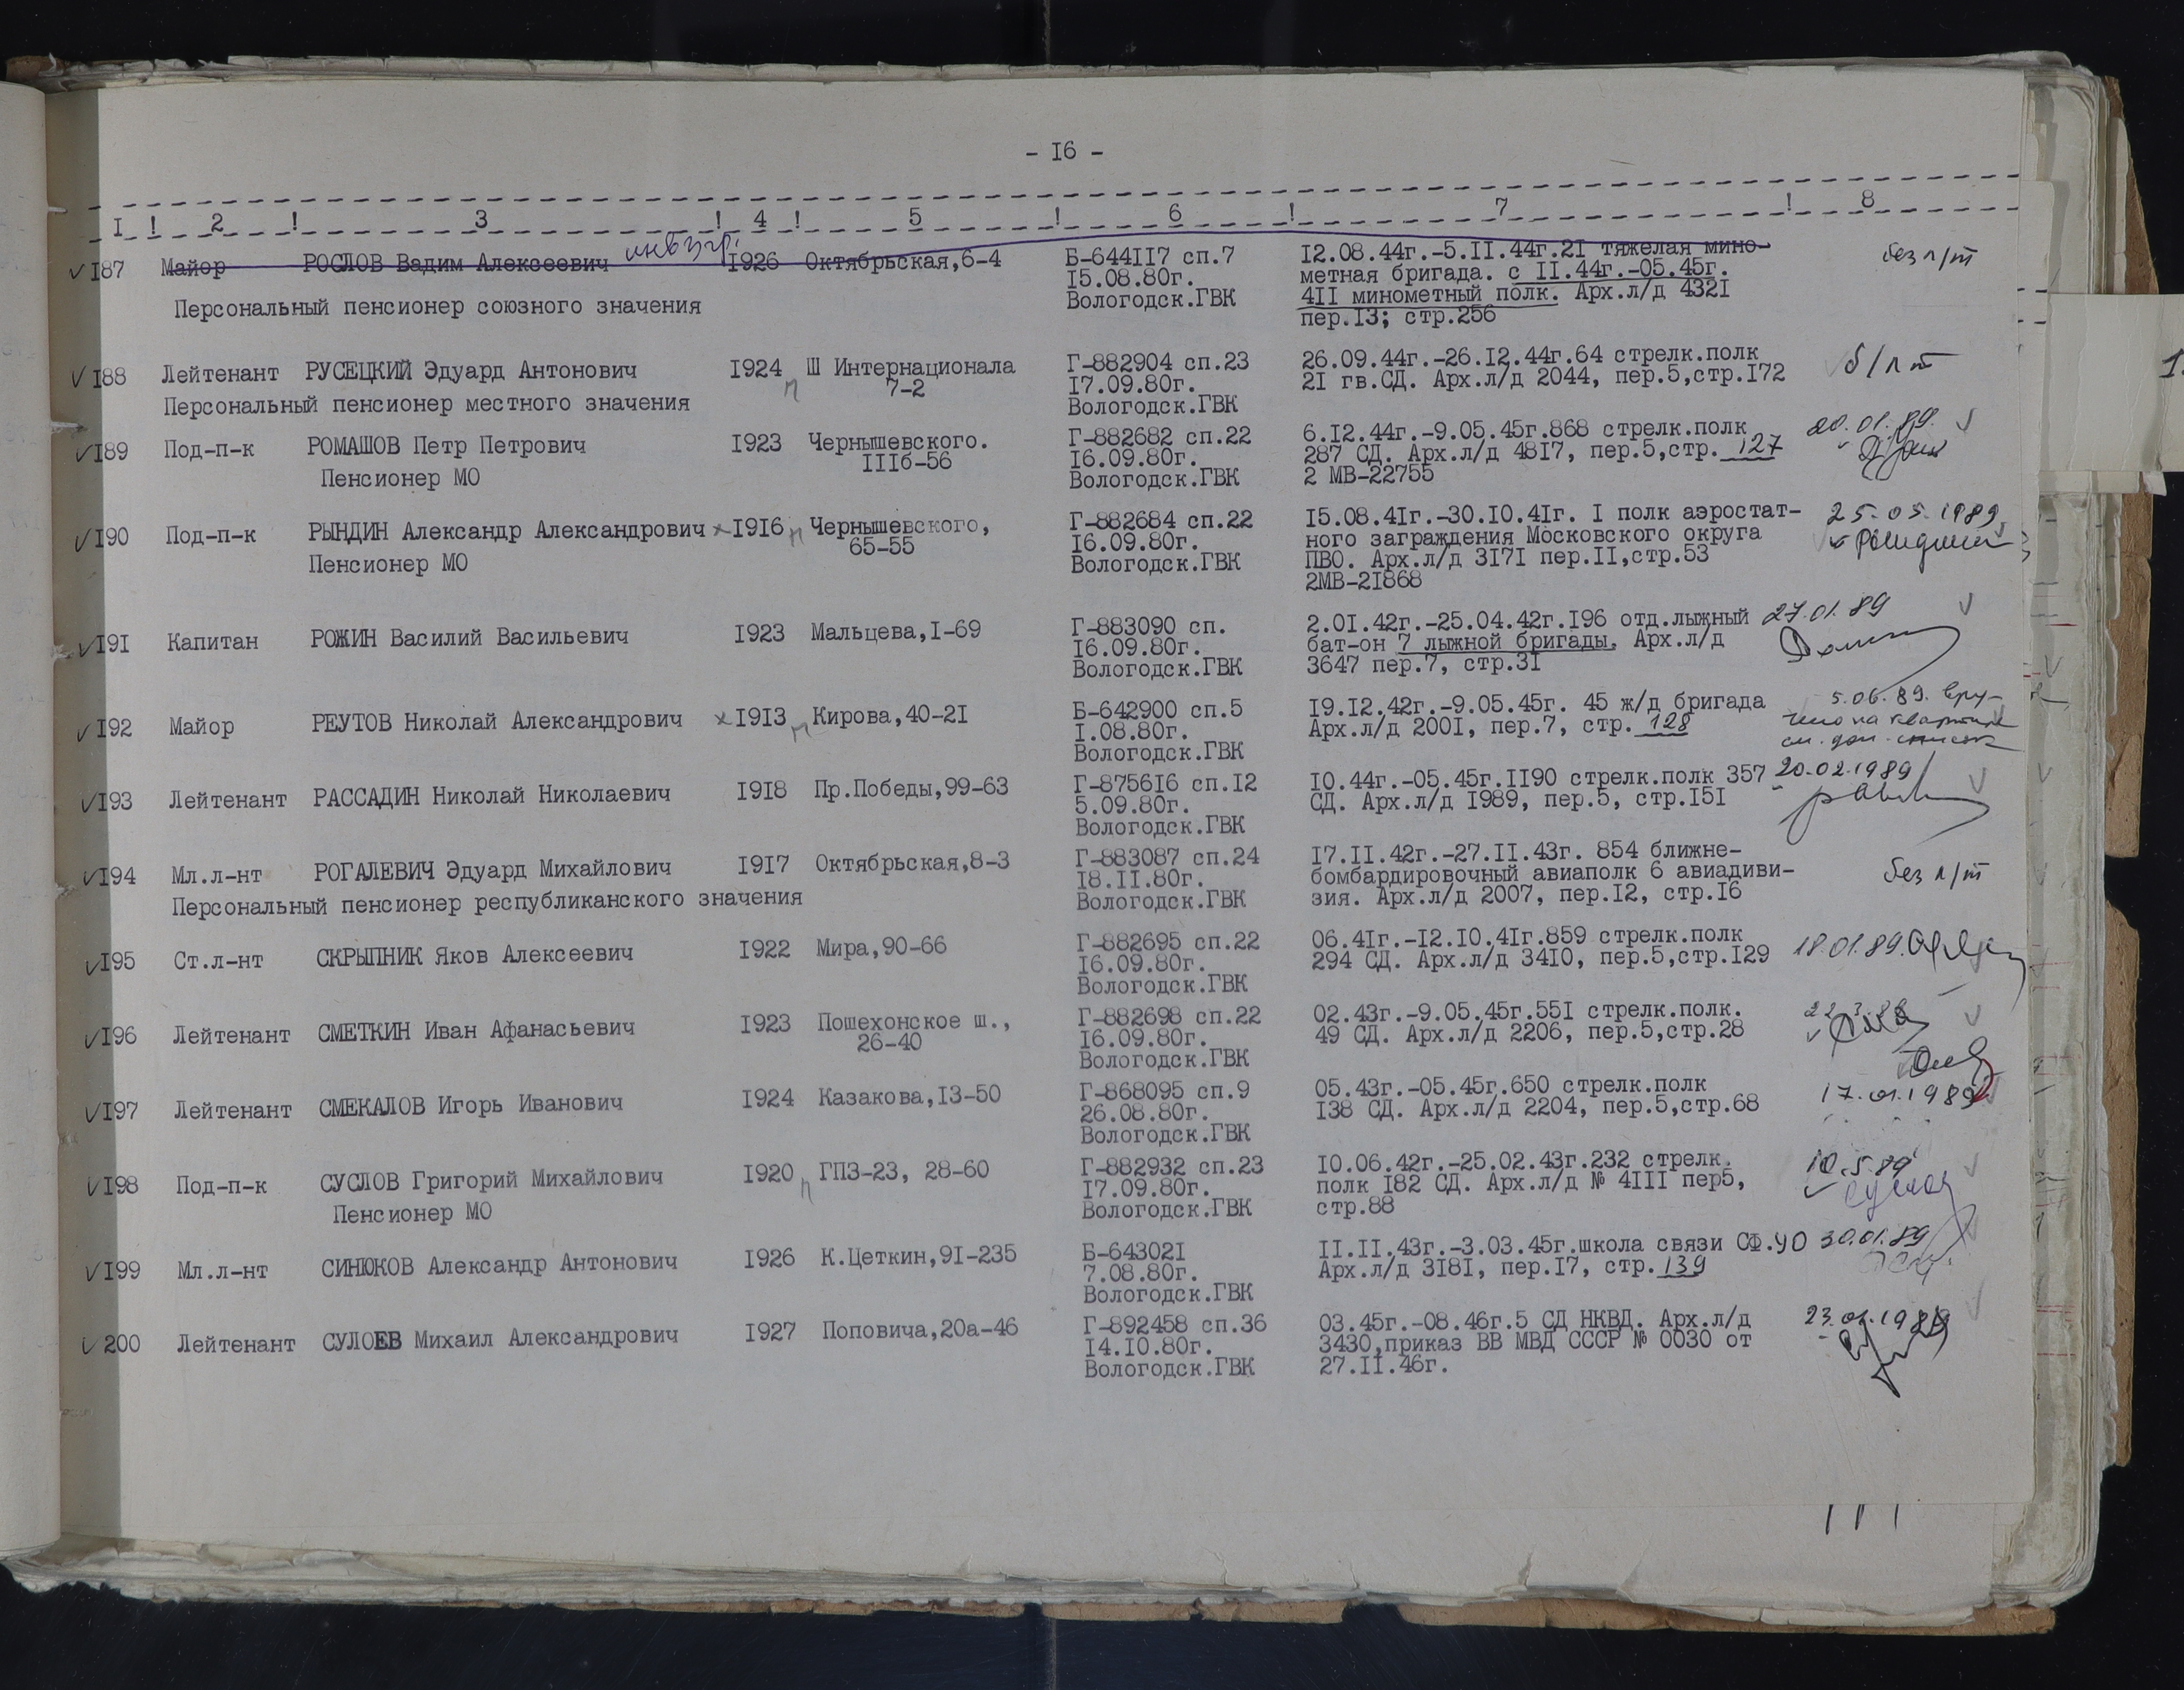 - I6 -
I ! 2 ! 3 ! 4 ! 5 ! 6 ! 7 ! 8
инв 3 гр.
I87 Майор РОСЛОВ Вадим Алексеевич I926 Октябрьская,6-4 Б-644II7 сп.7 I2.08.44г.-5.II.44г.2I тяжелая мино- без л/т
I5.08.80г. метная бригада. с II.44г.-05.45г.
Персональный пенсионер союзного значения Вологодск.ГВК 4II минометный полк. Арх.л/д 432I
пер.I3; стр.256
I88 Лейтенант РУСЕЦКИЙ Эдуард Антонович I924 п Ш Интернационала Г-882904 сп.23 26.09.44г.-26.I2.44г.64 стрелк.полк б/л т
7-2 I7.09.80г. 2I гв.СД. Арх.л/д 2044, пер.5,стр.I72
Персональный пенсионер местного значения Вологодск.ГВК
I89 Под-п-к РОМАШОВ Петр Петрович I923 Чернышевского. Г-882682 сп.22 6.I2.44г.-9.05.45г.868 стрелк.полк 20.01.89.
IIIб-56 I6.09.80г. 287 СД. Арх.л/д 48I7, пер.5,стр. 127
Пенсионер МО Вологодск.ГВК 2 МВ-22755
I90 Под-п-к РЫНДИН Александр Александрович I9I6 п Чернышевского, Г-882684 сп.22 I5.08.4Iг.-30.I0.4Iг. I полк аэростат- 25.05.1989
65-55 I6.09.80г. ного заграждения Московского округа
Пенсионер МО Вологодск.ГВК ПВО. Арх.л/д 3I7I пер.II,стр.53
2МВ-2I868
I9I Капитан РОЖИН Василий Васильевич I923 Мальцева,I-69 Г-883090 сп. 2.0I.42г.-25.04.42г.I96 отд.лыжный 27.01.89
I6.09.80г. бат-он 7 лыжной бригады. Арх.л/д
Вологодск.ГВК 3647 пер.7, стр.3I
I92 Майор РЕУТОВ Николай Александрович I9I3 п Кирова,40-2I Б-642900 сп.5 I9.I2.42г.-9.05.45г. 45 ж/д бригада 5.06.89. вру-
I.08.80г. Арх.л/д 200I, пер.7, стр. 128 чено на квартире
Вологодск.ГВК см. доп. список
I93 Лейтенант РАССАДИН Николай Николаевич I9I8 Пр.Победы,99-63 Г-8756I6 сп.I2 I0.44г.-05.45г.II90 стрелк.полк 357 20.02.1989
5.09.80г. СД. Арх.л/д I989, пер.5, стр.I5I
Вологодск.ГВК
I94 Мл.л-нт РОГАЛЕВИЧ Эдуард Михайлович I9I7 Октябрьская,8-3 Г-883087 сп.24 I7.II.42г.-27.II.43г. 854 ближне- без л/т
I8.II.80г. бомбардировочный авиаполк 6 авиадиви-
Персональный пенсионер республиканского значения Вологодск.ГВК зия. Арх.л/д 2007, пер.I2, стр.I6
I95 Ст.л-нт СКРЫПНИК Яков Алексеевич I922 Мира,90-66 Г-882695 сп.22 06.4Iг.-I2.I0.4Iг.859 стрелк.полк 18.01.89.
I6.09.80г. 294 СД. Арх.л/д 34I0, пер.5,стр.I29
Вологодск.ГВК
I96 Лейтенант СМЕТКИН Иван Афанасьевич I923 Пошехонское ш., Г-882698 сп.22 02.43г.-9.05.45г.55I стрелк.полк.
26-40 I6.09.80г. 49 СД. Арх.л/д 2206, пер.5,стр.28
Вологодск.ГВК
I97 Лейтенант СМЕКАЛОВ Игорь Иванович I924 Казакова,I3-50 Г-868095 сп.9 05.43г.-05.45г.650 стрелк.полк 17.01.1989
26.08.80г. I38 СД. Арх.л/д 2204, пер.5,стр.68
Вологодск.ГВК
I98 Под-п-к СУСЛОВ Григорий Михайлович I920 п ГПЗ-23, 28-60 Г-882932 сп.23 I0.06.42г.-25.02.43г.232 стрелк. 10.5.89
I7.09.80г. полк I82 СД. Арх.л/д № 4III пер5,
Пенсионер МО Вологодск.ГВК стр.88
I99 Мл.л-нт СИНЮКОВ Александр Антонович I926 К.Цеткин,9I-235 Б-64302I II.II.43г.-3.03.45г.школа связи СФ.УО 30.01.89
7.08.80г. Арх.л/д 3I8I, пер.I7, стр. 139
Вологодск.ГВК
200 Лейтенант СУЛОЕВ Михаил Александрович I927 Поповича,20а-46 Г-892458 сп.36 03.45г.-08.46г.5 СД НКВД. Арх.л/д 23.01.1989
I4.I0.80г. 3430,приказ ВВ МВД СССР № 0030 от
Вологодск.ГВК 27.II.46г.